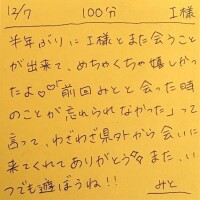 12/7 100分 I様
半年ぶりにI様とまた会うこと
が出来て、めちゃくちゃ嬉しかっ
たよ♡♡「前回みとと会った時
のことが忘れられなかった」って
言って、わざわざ県外から会いに
来てくれてありがとう♡♡また、い
つでも遊ぼうね!!
みと